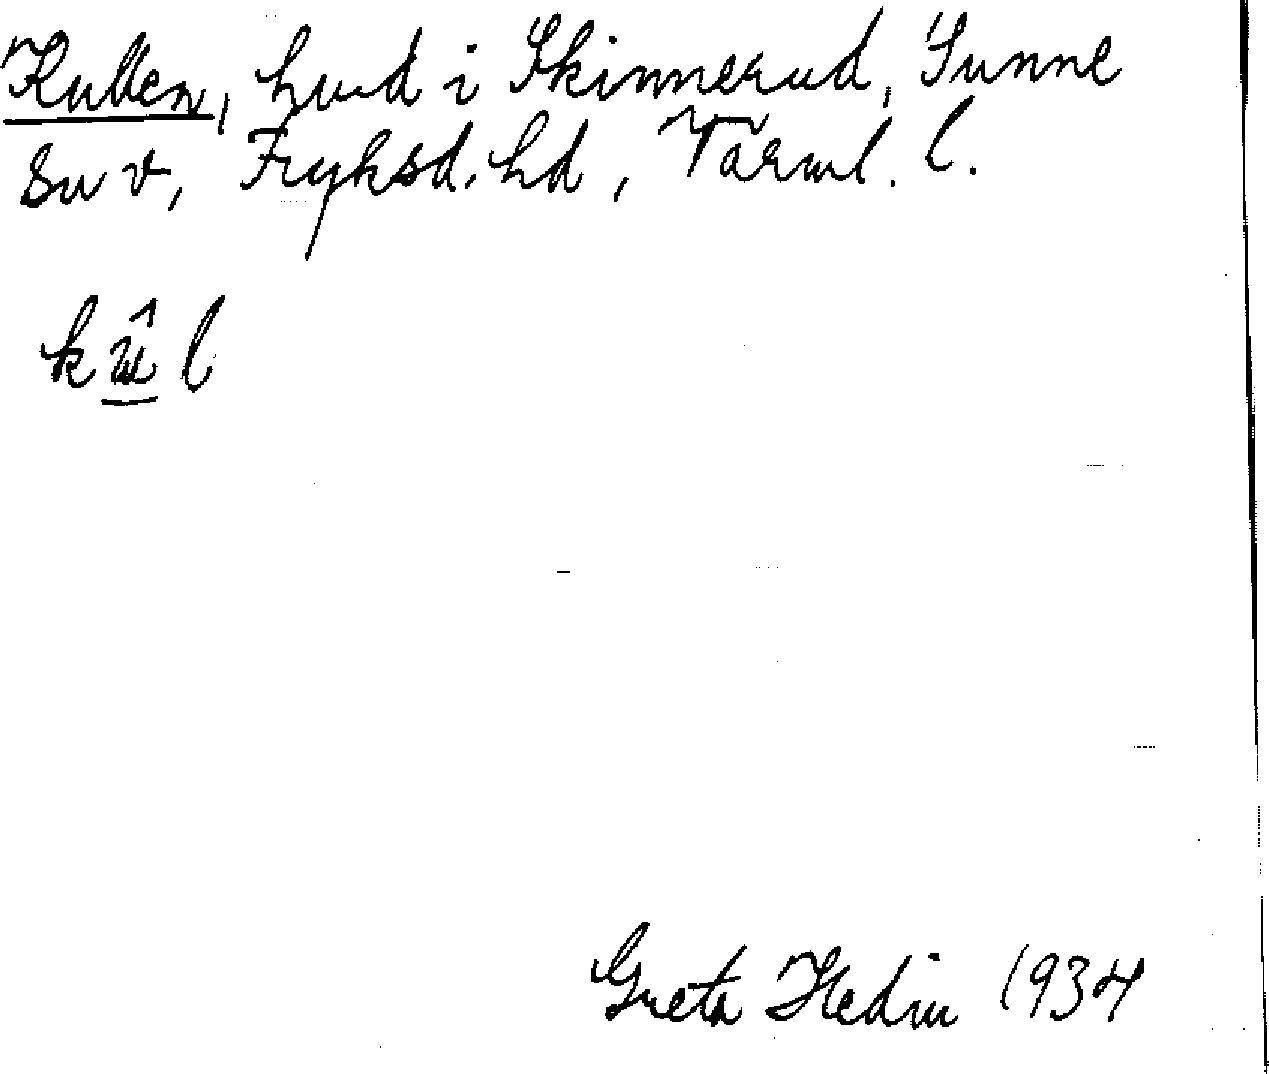 Kullen, hmd i Skinnerud, Sunne
sn v, Fryksd. hd, Värml. l.
kûl
Greta Hedin 1934